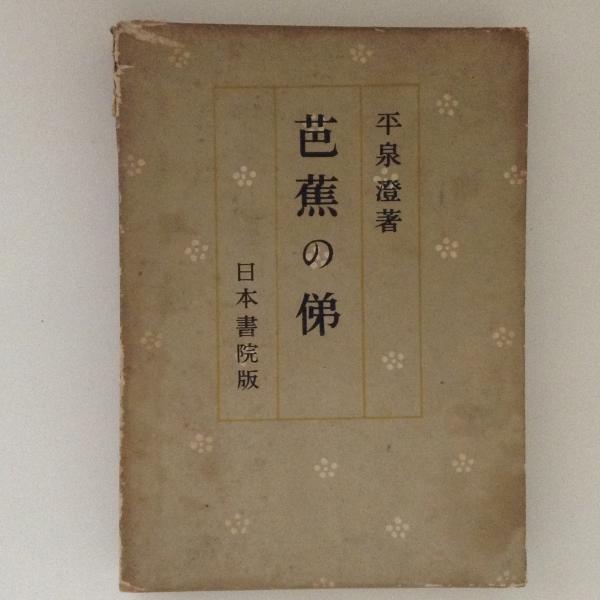 平泉澄著
芭蕉の俤
日本書院版